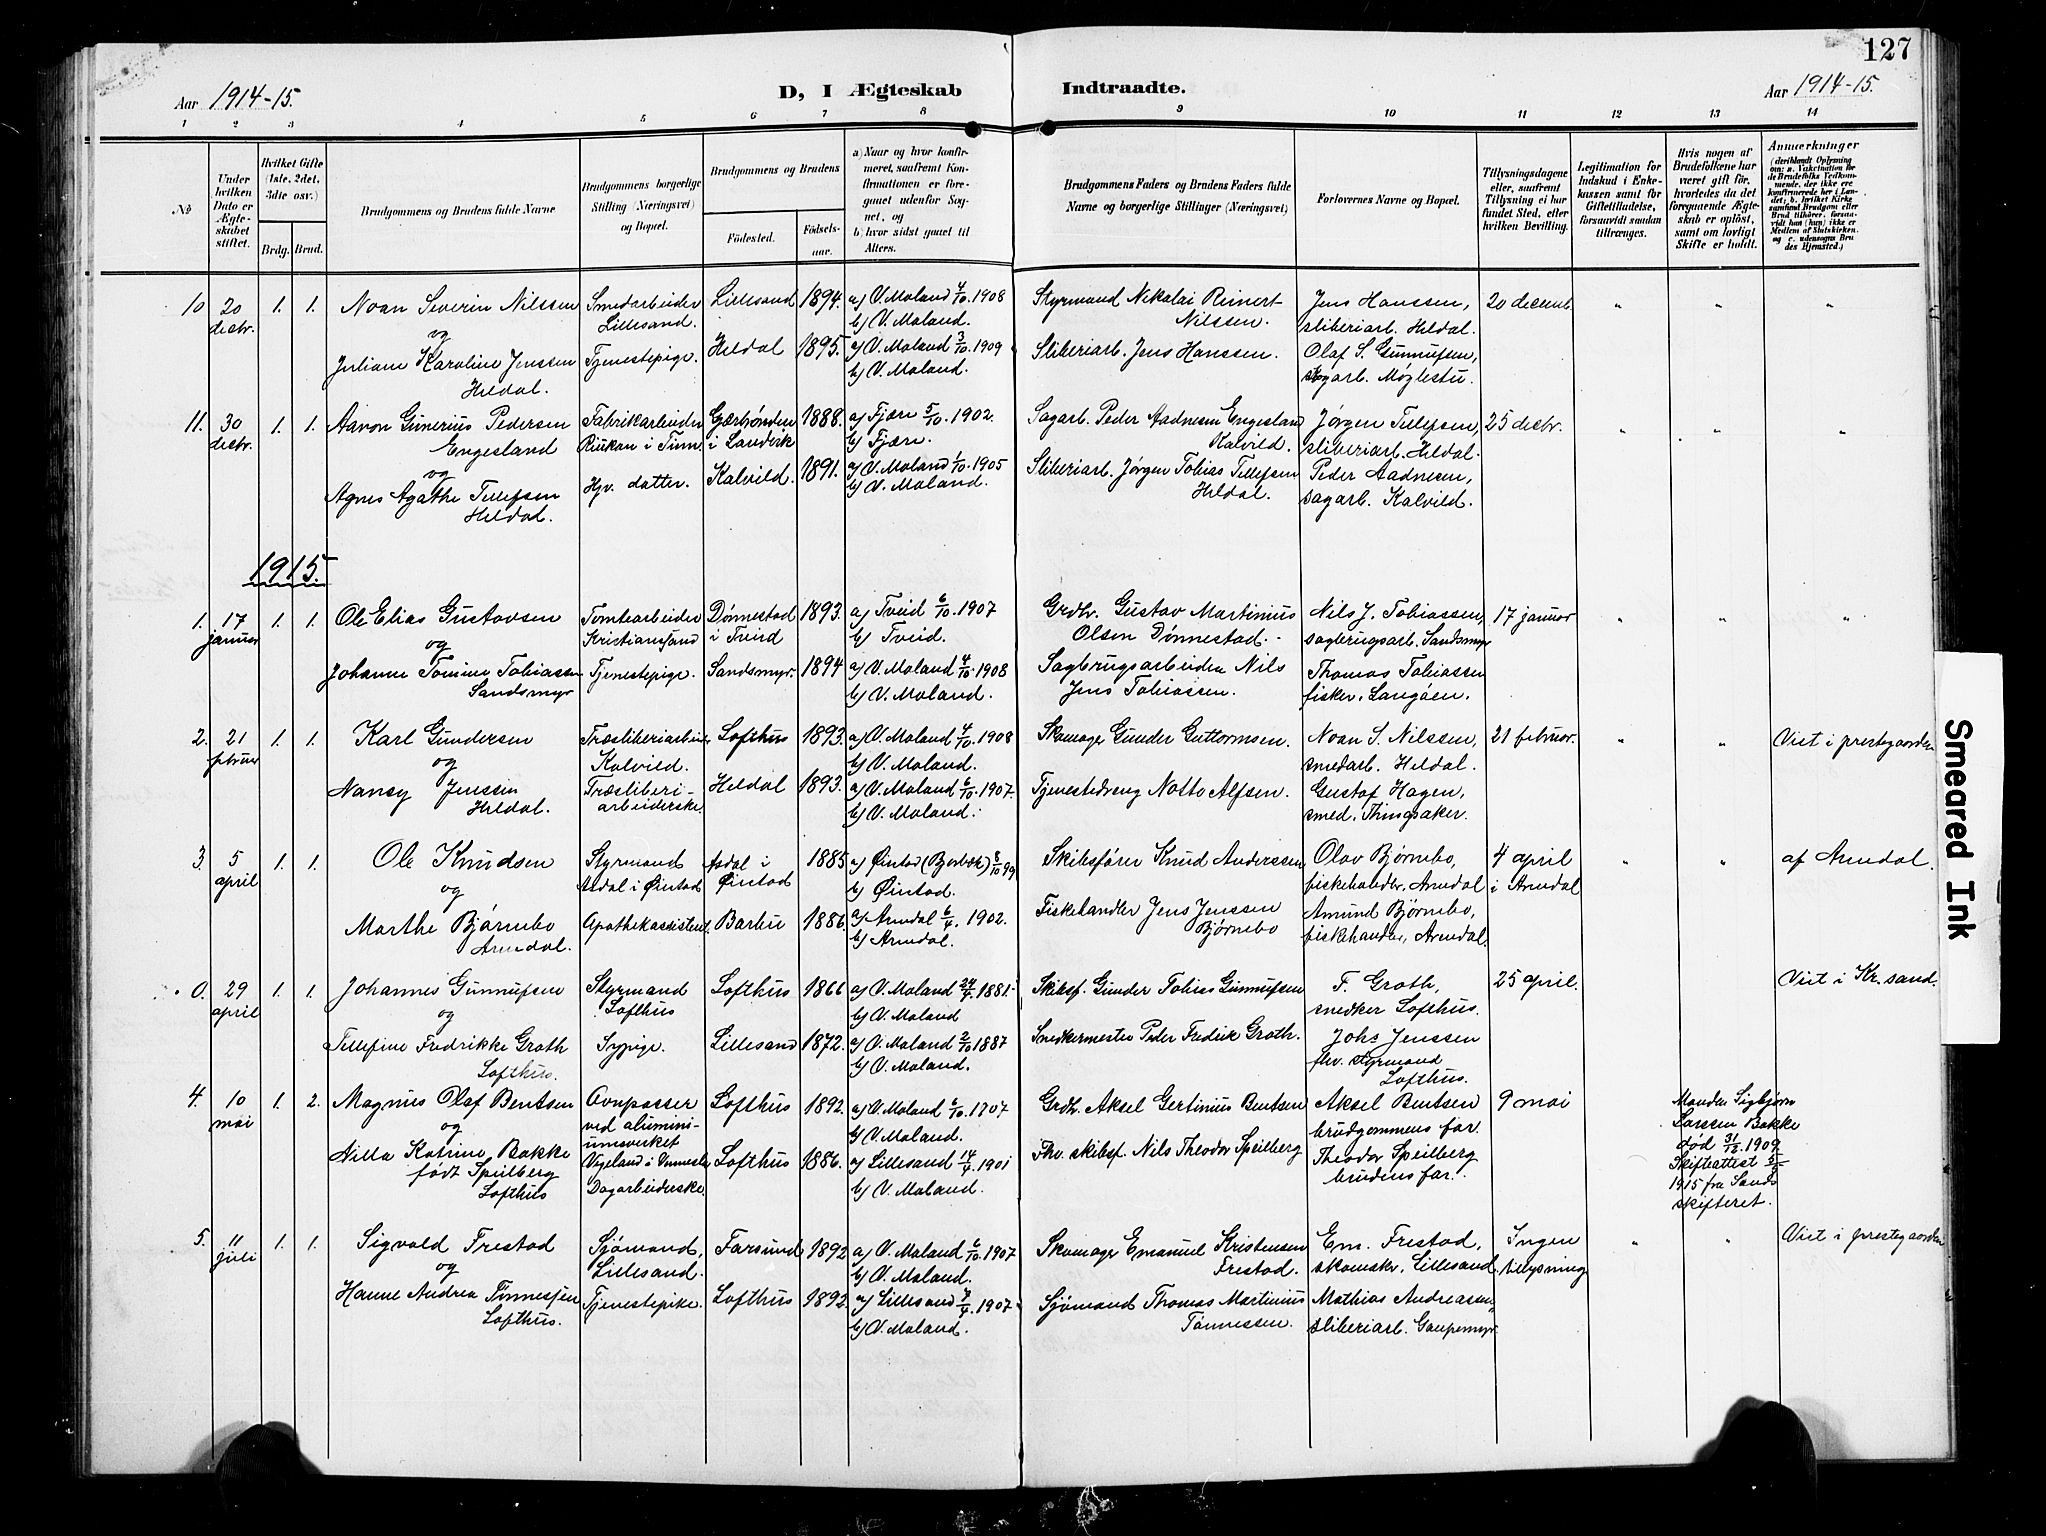 127
Aar 1914-15.
D, I Ægteskab Indtraadte.
Aar 1914-15.
1 2 3 4 5 6 7 8 9 10 11 12 13 14
No
Under hvilken Dato er Ægteskabet stiftet.
Hvilket Gifte (1ste, 2det, 3die osv.)
Brdg. Brud.
Brudgommens og Brudens fulde Navne
Brudgommens borgerlige Stilling (Næringsvei) og Bopæl.
Brudgommens og Brudens
Födested. Födselsaar.
a) Naar og hvor konfirmeret, saafremt Konfirmationen er foregaaet udenfor Sognet, og
b) hvor sidst gaaet til Alters.
Brudgommens Faders og Brudens Faders fulde Navne og borgerlige Stillinger (Næringsvei)
Forlovernes Navne og Bopæl.
Tillysningsdagene eller, saafremt Tillysning ei har fundet Sted, efter hvilken Bevilling.
Legitimation for Indskud i Enkekassen samt for Giftetilladelse, forsaavidt saadan tiltrænges.
Hvis nogen af Brudefolkene har været gift för, hvorledes da det foregaaende Ægteskab er oplöst, samt om lovligt Skifte er holdt.
Anmerkninger
10 20 decbr. 1. 1. Noan Severin Nilssen Smedarbeider Lillesand 1894. a) V. Moland 4/10. 1908 Styrmand Nikolai Reinert Jens Hanssen, 20 decemb. " " "
og Lillesand. b) V. Moland. Nilssen. sliberiarb. Heldal.
Juliane Karoline Jenssen Tjenestepige. Heldal 1895. a) V. Moland 3/10. 1909 Sliberiarb. Jens Hanssen. Olaf S. Gunnufsen,
Heldal. b) V. Moland. sagarb. Møglestu.
11. 30 decbr. 1. 1. Aavon Gunerius Pedersen Fabrikarbeider Gjærbønden 1888. a) Fjære 5/10. 1902. Sagarb. Peder Aadnesen Engesland Jørgen Tellefsen, 25 decbr. " " "
Engesland Riukan i Tinn i Landvik b) Fjære. Kalvild. sliberiarb. Heldal.
og
Agnes Agathe Tellefsen Hjv. datter. Kalvild. 1891. a) V. Moland 1/10. 1905 Sliberiarb. Jørgen Tobias Tellefsen Peder Aadnesen,
Heldal. b) V. Moland. Heldal. sagarb. Kalvild.
1915.
1. 17 januar 1. 1. Ole Elias Gustavsen Tomtearbeider Dønnestad 1893. a) Tveid 6/10. 1907 Grdbr. Gustav Martinius Nils J. Tobiassen, 17 januar " " "
og Kristianssand i Tveid b) Tveid. Olsen Dønnestad. sagbrugsarb. Sandsmyr
Johanne Tomine Tobiassen Tjenestepige. Sandsmyr. 1894 a) V. Moland 4/10. 1908 Sagbrugsarbeider Nils Thomas Tobiassen
Sandsmyr b) V. Moland. Jens Tobiassen. fisker, Langøen.
2. 21 februar 1. 1. Karl Gundersen Træsliberiarbeider Lofthus 1893. a) V. Moland 4/10. 1908 Skomager Gunder Guttormsen. Noan S. Nilssen, 21 februar. " " Viet i prestegaarden
og Kalvild. b) V. Moland. smedarb. Heldal.
Nancy Jenssen Træsliberi- Heldal 1893. a) V. Moland 6/10. 1907. Tjenestedreng Notto Alfsen. Gustaf Hagen,
Heldal. arbeiderske b) V. Moland. smed. Thingsaker.
3. 5 april 1. 1. Ole Knudsen Styrmand Asdal i 1885 a) Øiestad (Bjorbæk) 8/10 99 Skibsfører Knud Anderssen Olav Bjørnebo, 4 april " " af Arendal.
og Asdal i Øiestad Øiestad b) Øiestad. fiskehandler, Arendal i Arendal
Marthe Bjørnebo Apothekassistent Barbu 1886. a) Arendal 6/4. 1902. Fiskehandler Jens Jenssen Amund Bjørnebo,
Arendal. b) Arendal. Bjørnebo fiskehandler, Arendal.
0. 29 april 1. 1. Johannes Gunnufsen Styrmand Lofthus 1866 a) V. Moland 24/4. 1881. Skibsf. Gunder Tobias Gunnufsen F. Groth, 25 april. Viet i Kr.sand.
og Lofthus b) V. Moland snedker Lofthus.
Tellefine Fredrikke Groth Sypige. Lillesand 1872. a) V. Moland 2/10 1887 Snedkermester Peder Fredrik Groth. Johs Jenssen
Lofthus. b) V. Moland. fhv. styrmand
Lofthus.
4. 10 mai 1. 2. Magnus Olaf Bentsen Ovnpasser Lofthus 1892. a) V. Moland 6/10. 1907 Grdbr. Aksel Gertinius Bentsen Aksel Bentsen 9 mai Manden Sigbjørn
og ved alumini- b) V. Moland. brudgommens far. Larssen Bakke
umsverket død 31/2. 1909
Nilla Katrine Bakke Vigeland i Vennesla Lofthus 1886. a) Lillesand 14/4. 1901 Fhv. skibsf. Nils Theodor Speilberg Theodor Speilberg Skifteattest 5/5
født Speilberg Dagarbeiderske. b) V. Moland. brudens far. 1915 fra Sands
Lofthus skifteret.
5. 11 juli 1. 1. Sigvald Frestad Sjømand, Farsund 1892 a) V. Moland 6/10. 1907 Skomager Emanuel Kristensen Em. Frestad, Ingen " " Viet i prestegaarden
og Lillesand. b) V. Moland. Frestad. skomaker, Lillesand tillysning
Hanne Andrea Tønnessen Tjenestepike. Lofthus 1892. a) Lillesand 7/4. 1907 Sjømand Thomas Martinius Mathias Andreasen,
Lofthus. b) V. Moland. Tønnessen. sliberiarb. Gaupemyr.
Smeared Ink